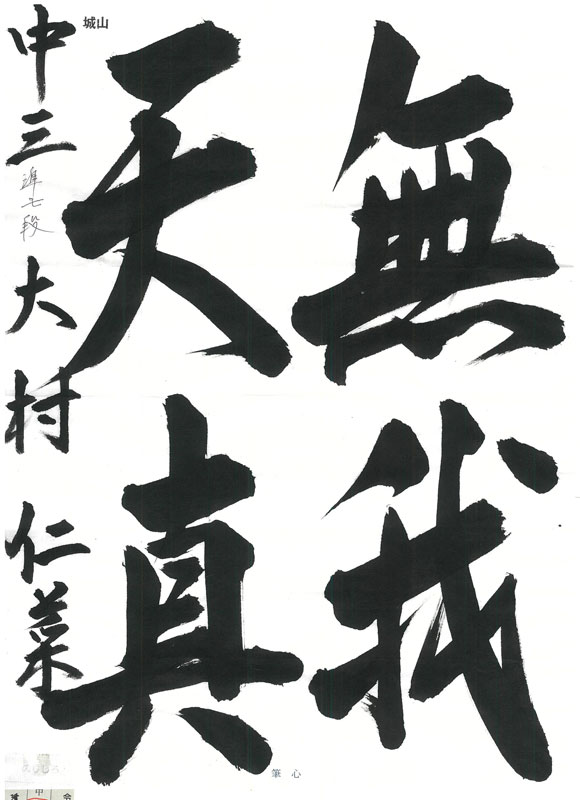 無我
天真
城山
中三 準七段 大村 仁菜
筆心